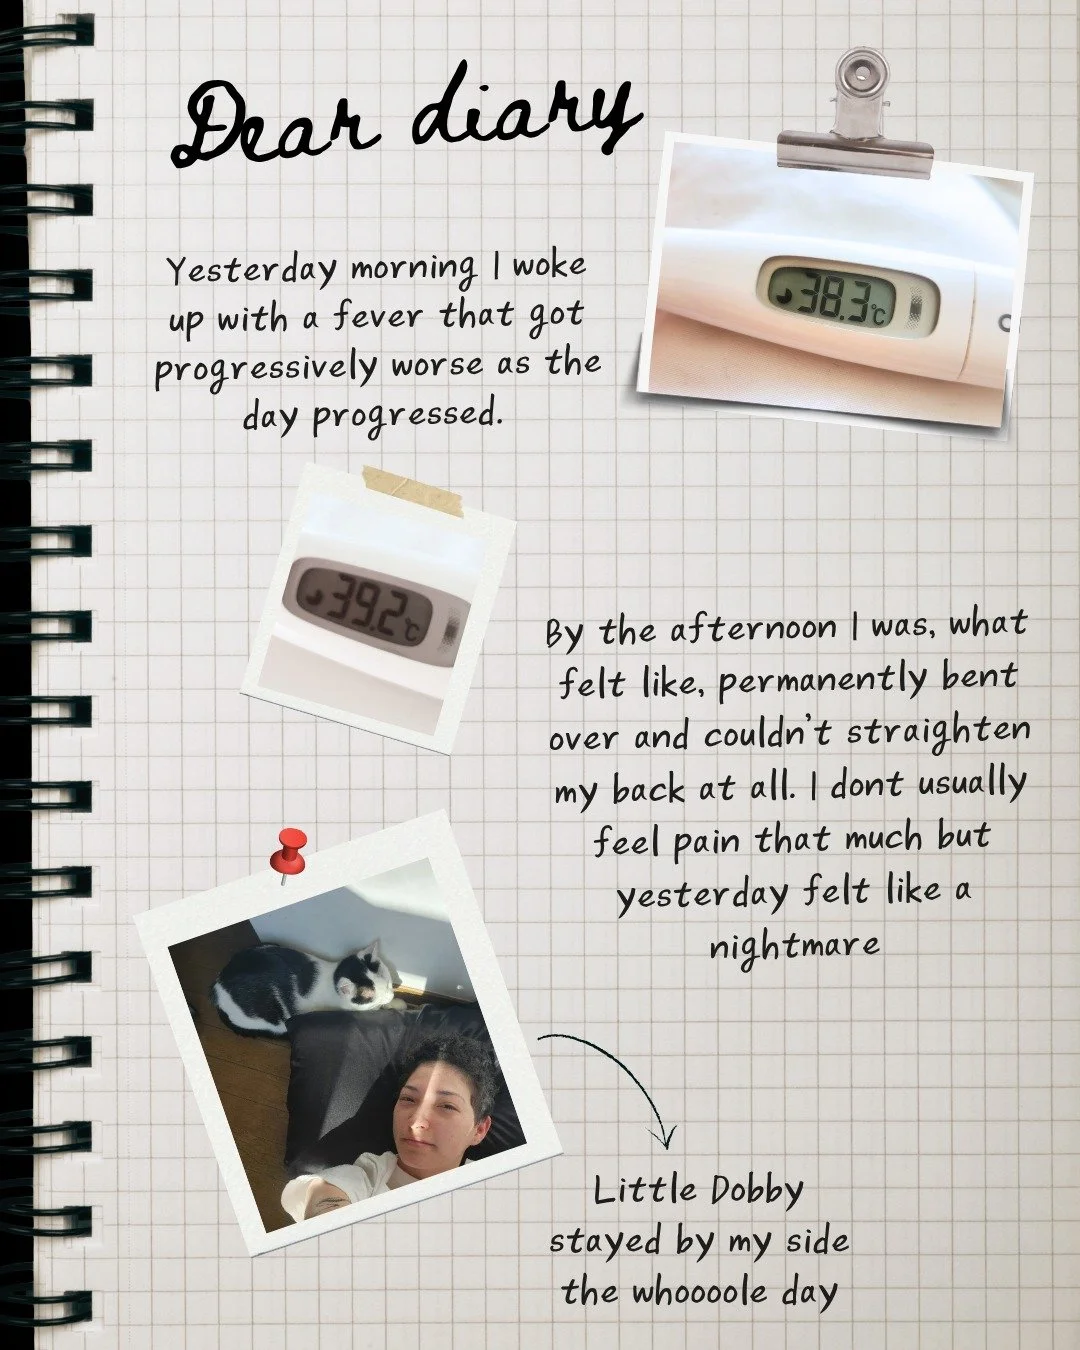 Dear diary
Yesterday morning I woke
up with a fever that got
progressively worse as the
day progressed.
38.3°C
39.2°C
By the afternoon I was, what
felt like, permanently bent
over and couldn't straighten
my back at all. I dont usually
feel pain that much but
yesterday felt like a
nightmare
Little Dobby
stayed by my side
the whoooole day